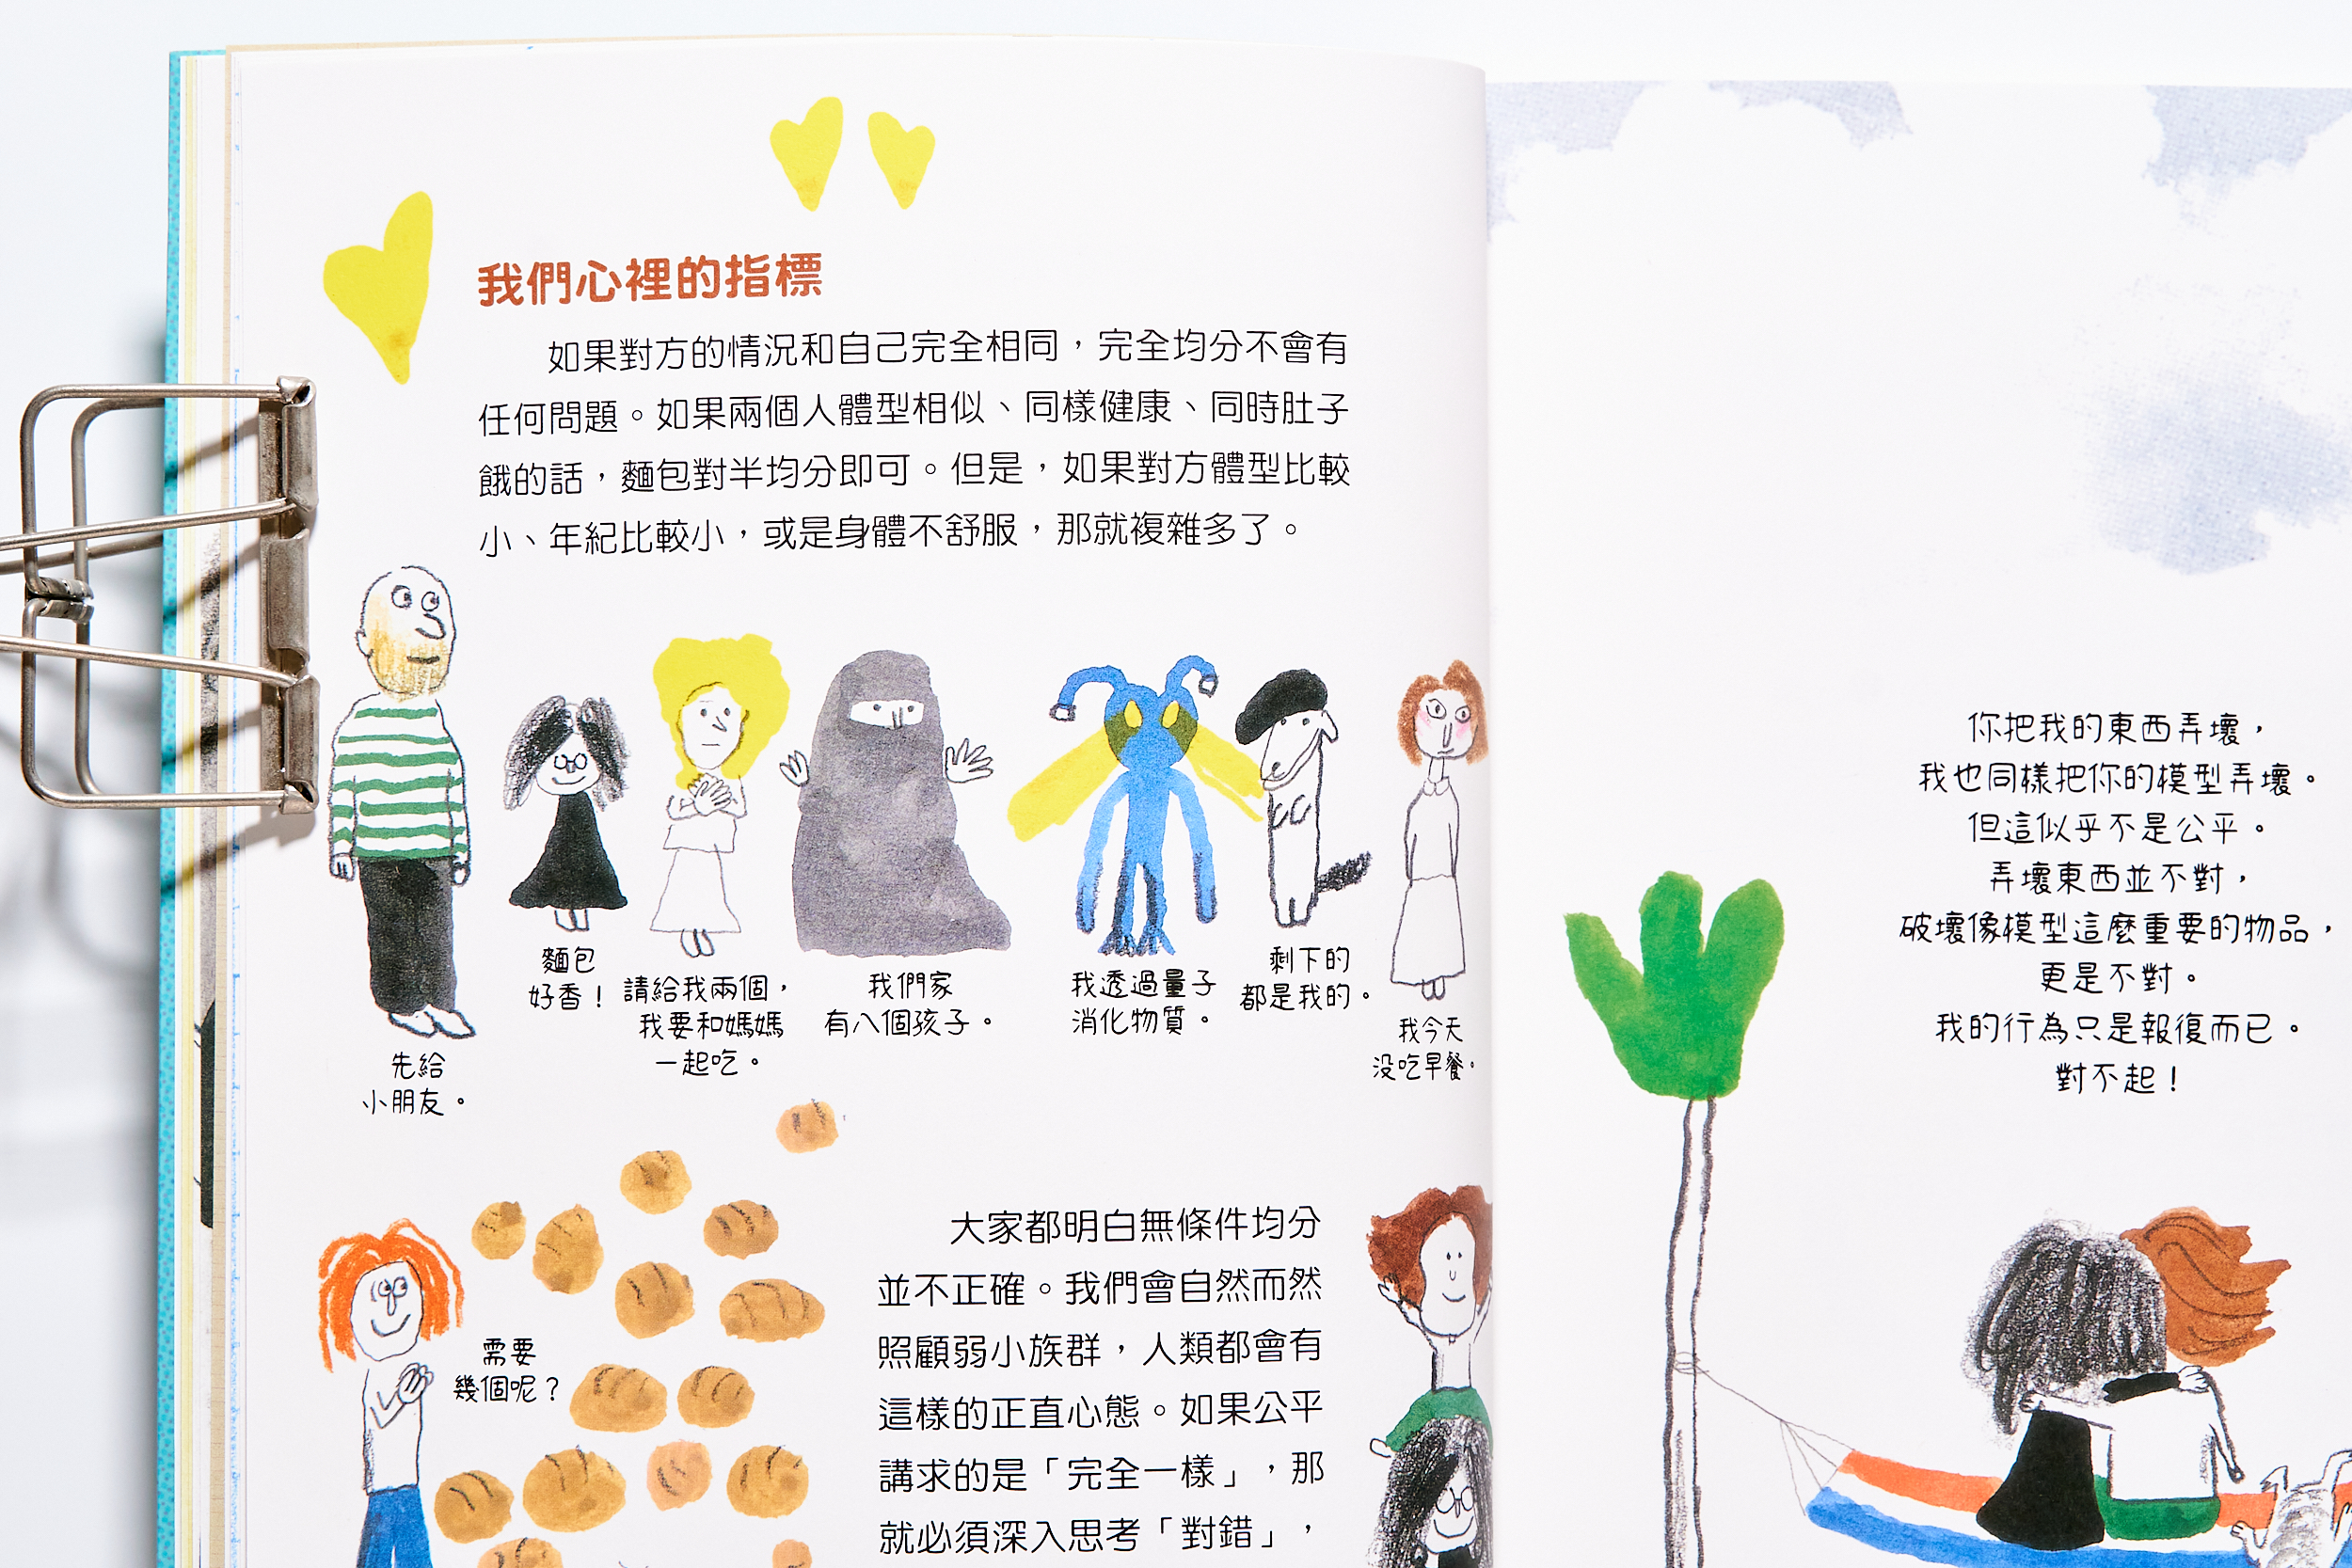 我們心裡的指標
如果對方的情況和自己完全相同，完全均分不會有
任何問題。如果兩個人體型相似、同樣健康、同時肚子
餓的話，麵包對半均分即可。但是，如果對方體型比較
小、年紀比較小，或是身體不舒服，那就複雜多了。
先給
小朋友。
麵包
好香！
請給我兩個，
我要和媽媽
一起吃。
我們家
有八個孩子。
我透過量子
消化物質。
剩下的
都是我的。
我今天
沒吃早餐。
需要
幾個呢？
大家都明白無條件均分
並不正確。我們會自然而然
照顧弱小族群，人類都會有
這樣的正直心態。如果公平
講求的是「完全一樣」，那
就必須深入思考「對錯」，
你把我的東西弄壞，
我也同樣把你的模型弄壞。
但這似乎不是公平。
弄壞東西並不對，
破壞像模型這麼重要的物品，
更是不對。
我的行為只是報復而已。
對不起！